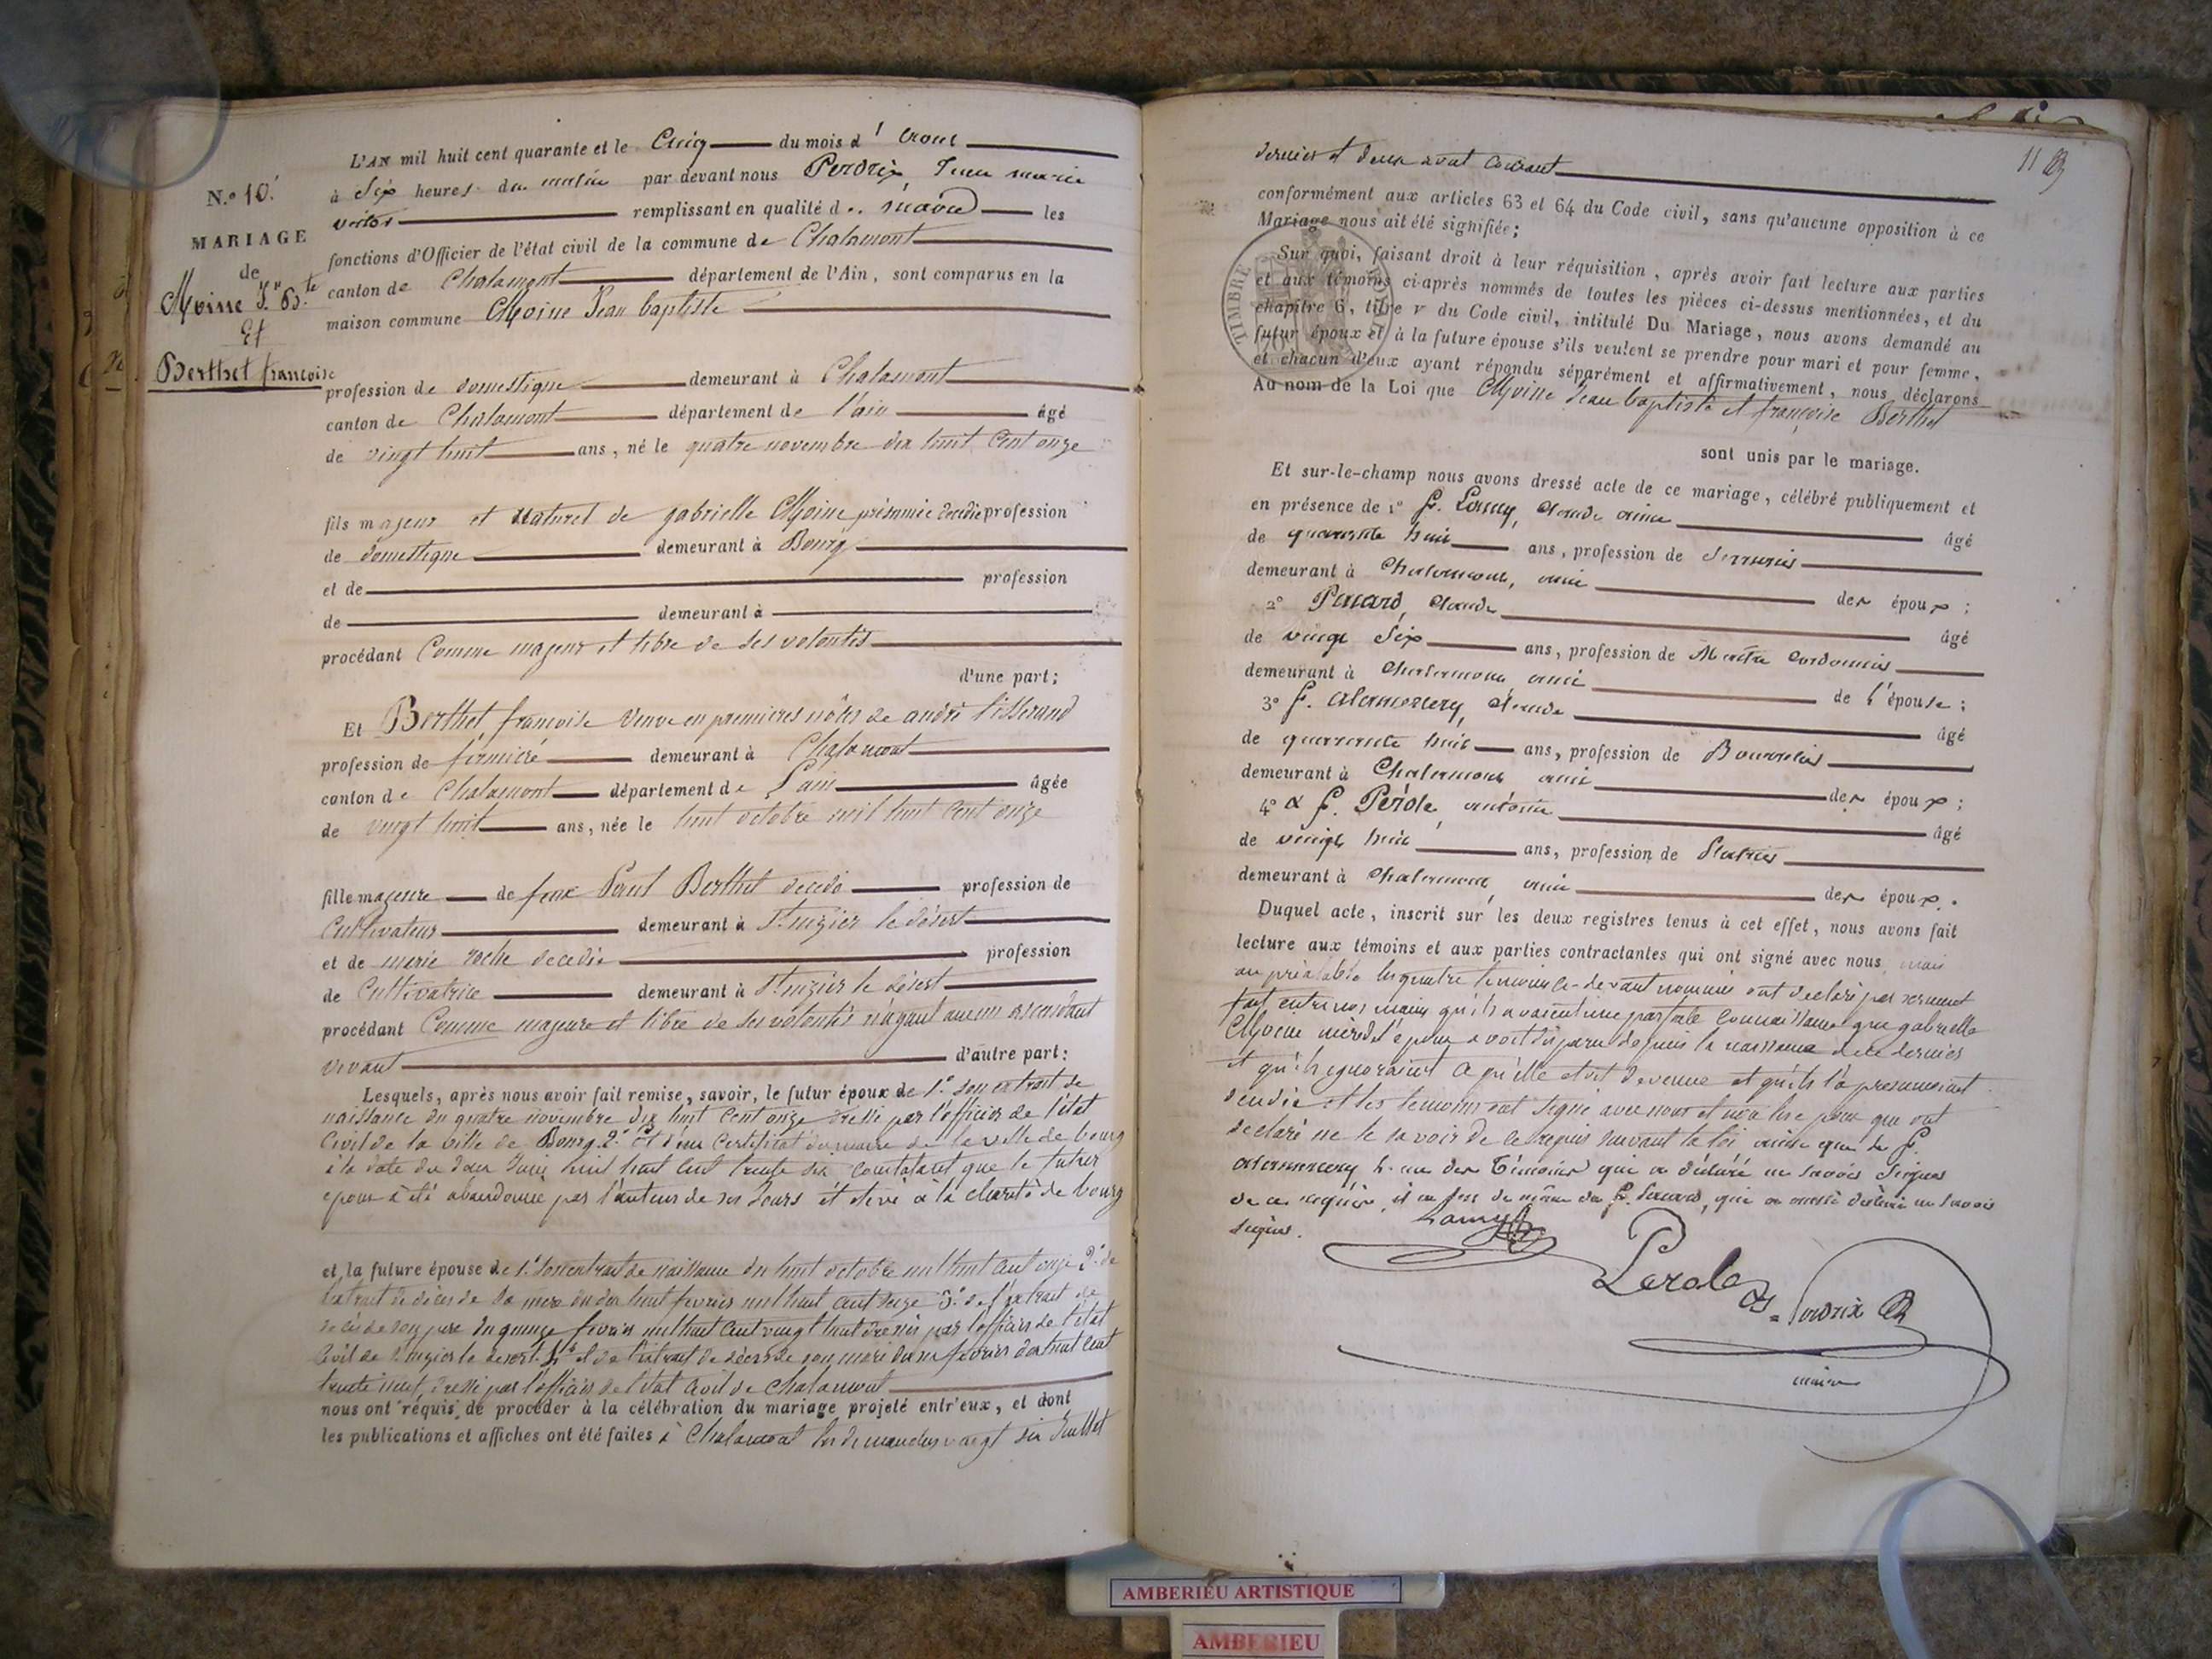 N.º 10.
MARIAGE
de
Moine Jn Bte
Et
Berthet francoise
L'AN mil huit cent quarante et le Cinq du mois d'Aout
à Six heures du matin par devant nous Perdrix, Jean marie
victor remplissant en qualité de maire les
fonctions d'Officier de l'état civil de la commune de Chalamont
canton de Chalamont département de l'Ain, sont comparus en la
maison commune Moine Jean baptiste
profession de domestique demeurant à Chalamont
canton de Chalamont département de l'ain âgé
de vingt huit ans, né le quatre novembre dix huit Cent onze
fils majeur et Naturel de gabrielle Moine présumée décédée profession
de domestique demeurant à Bourg
et de profession
de demeurant à
procédant Comme majeur et libre de ses volontés
d'une part;
Et Berthet francoise Veuve en premieres nôces de andré tisserand
profession de fermière demeurant à Chalamont
canton de Chalamont département de L'ain âgée
de vingt huit ans, née le huit octobre mil huit Cent onze
fille majeure de feux Paul Berthet décédé profession de
Cultivateur demeurant à St. nizier le désert
et de marie roche décédée profession
de Cultivatrice demeurant à St nizier le désert
procédant Comme majeure et libre de ses volontés n'ayant aucun ascendant
vivant d'autre part:
Lesquels, après nous avoir fait remise, savoir, le futur époux de 1.º son extrait de
naissance du quatre novembre dix huit Cent onze dressé par l'officier de l'état
Civil de la ville de Bourg 2.º Et d'un Certificat du maire de la ville de bourg
à la date du deux Juin mil huit Cent trente six constatant que le futur
epoux a été abandonné par l'auteur de ses Jours et élevé à la charité de bourg
et la future épouse de 1.º Son extrait de naissance du huit octobre mil huit Cent onze 2.º de
l'extrait de décès de sa mere du dix huit fevrier mil huit Cent seize 3.º de l'extrait de
décès de son père du quinze fevrier mil huit Cent vingt huit dressés par l'officier de l'état
Civil de St nizier le desert. 4.º et de l'extrait de décès de son mari du fevrier dix huit Cent
trente neuf, dressé par l'officier de l'état Civil de Chalamont
nous ont requis de procéder à la célébration du mariage projeté entr'eux, et dont
les publications et affiches ont été faites à Chalamont les dimanches vingt six Juillet
11
dernier et deux aout Courant
conformément aux articles 63 et 64 du Code civil, sans qu'aucune opposition à ce
Mariage nous ait été signifiée;
TIMBRE
Sur quoi, faisant droit à leur réquisition, après avoir fait lecture aux parties
et aux témoins ci-après nommés de toutes les pièces ci-dessus mentionnées, et du
chapitre 6, titre v du Code civil, intitulé Du Mariage, nous avons demandé au
futur époux et à la future épouse s'ils veulent se prendre pour mari et pour femme,
et chacun d'eux ayant répondu séparément et affirmativement, nous déclarons
Au nom de la Loi que Moine Jean baptiste et françoise Berthet
sont unis par le mariage.
Et sur-le-champ nous avons dressé acte de ce mariage, célébré publiquement et
en présence de 1º Lamy, Claude âgé
de quarante huit ans, profession de Serrurier
demeurant à Chalamont, ami des époux;
2º Pacard, Claude âgé
de vingt Six ans, profession de Maitre Cordonnier
demeurant à Chalamont ami de l'épouse;
3º Claude âgé
de quarante huit ans, profession de Bourrelier
demeurant à Chalamont ami des époux;
4º Perole, antoine âgé
de vingt huit ans, profession de Platrier
demeurant à Chalamont, ami des époux.
Duquel acte, inscrit sur les deux registres tenus à cet effet, nous avons fait
lecture aux témoins et aux parties contractantes qui ont signé avec nous, mais
au préalable les quatre temoins ci-devant nommés ont déclaré par serment
fait entre nos mains qu'ils avaient une parfaite connaissance que gabrielle
Moine mère de l'époux avoit disparu depuis la naissance de ce dernier
et qu'ils ignoraient ce qu'elle etoit devenue et qu'ils la présumoient
décédée et les temoins ont signé avec nous et non les epoux qui ont
declaré ne le savoir de ce requis suivant la loi ainsi que le
des témoins qui a déclaré ne savoir Signer
de ce requis, et de même du Sr. Pacard, que a aussi déclaré ne savoir
signer.
Lamy
Perole
Perdrix
maire
AMBERIEU ARTISTIQUE
AMBERIEU